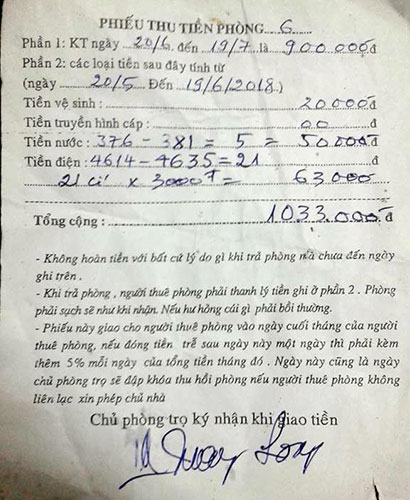 PHIẾU THU TIỀN PHÒNG 6
Phần 1: KT ngày 20/6 đến 19/7 là 900.000đ
Phần 2: các loại tiền sau đây tính từ
(ngày 20/5 Đến 19/6/2018)
Tiền vệ sinh : 20000đ
Tiền truyền hình cáp : 00 đ
Tiền nước : 376 - 381 = 5 = 50.000đ
Tiền điện : 4614 - 4635 = 21 đ
21 x 3000 = 63000
Tổng cộng : 1033.000đ
- Không hoàn tiền với bất cứ lý do gì khi trả phòng mà chưa đến ngày
ghi trên .
- Khi trả phòng , người thuê phòng phải thanh lý tiền ghi ở phần 2 . Phòng
phải sạch sẽ như khi nhận. Nếu hư hỏng cái gì phải bồi thường.
- Phiếu này giao cho người thuê phòng vào ngày cuối tháng của người
thuê phòng, nếu đóng tiền trễ sau ngày này một ngày thì phải kèm
thêm 5% mỗi ngày của tổng tiền tháng đó . Ngày này cũng là ngày
chủ phòng trọ sẽ đập khóa thu hồi phòng nếu người thuê phòng không
liên lạc xin phép chủ nhà
Chủ phòng trọ ký nhận khi giao tiền